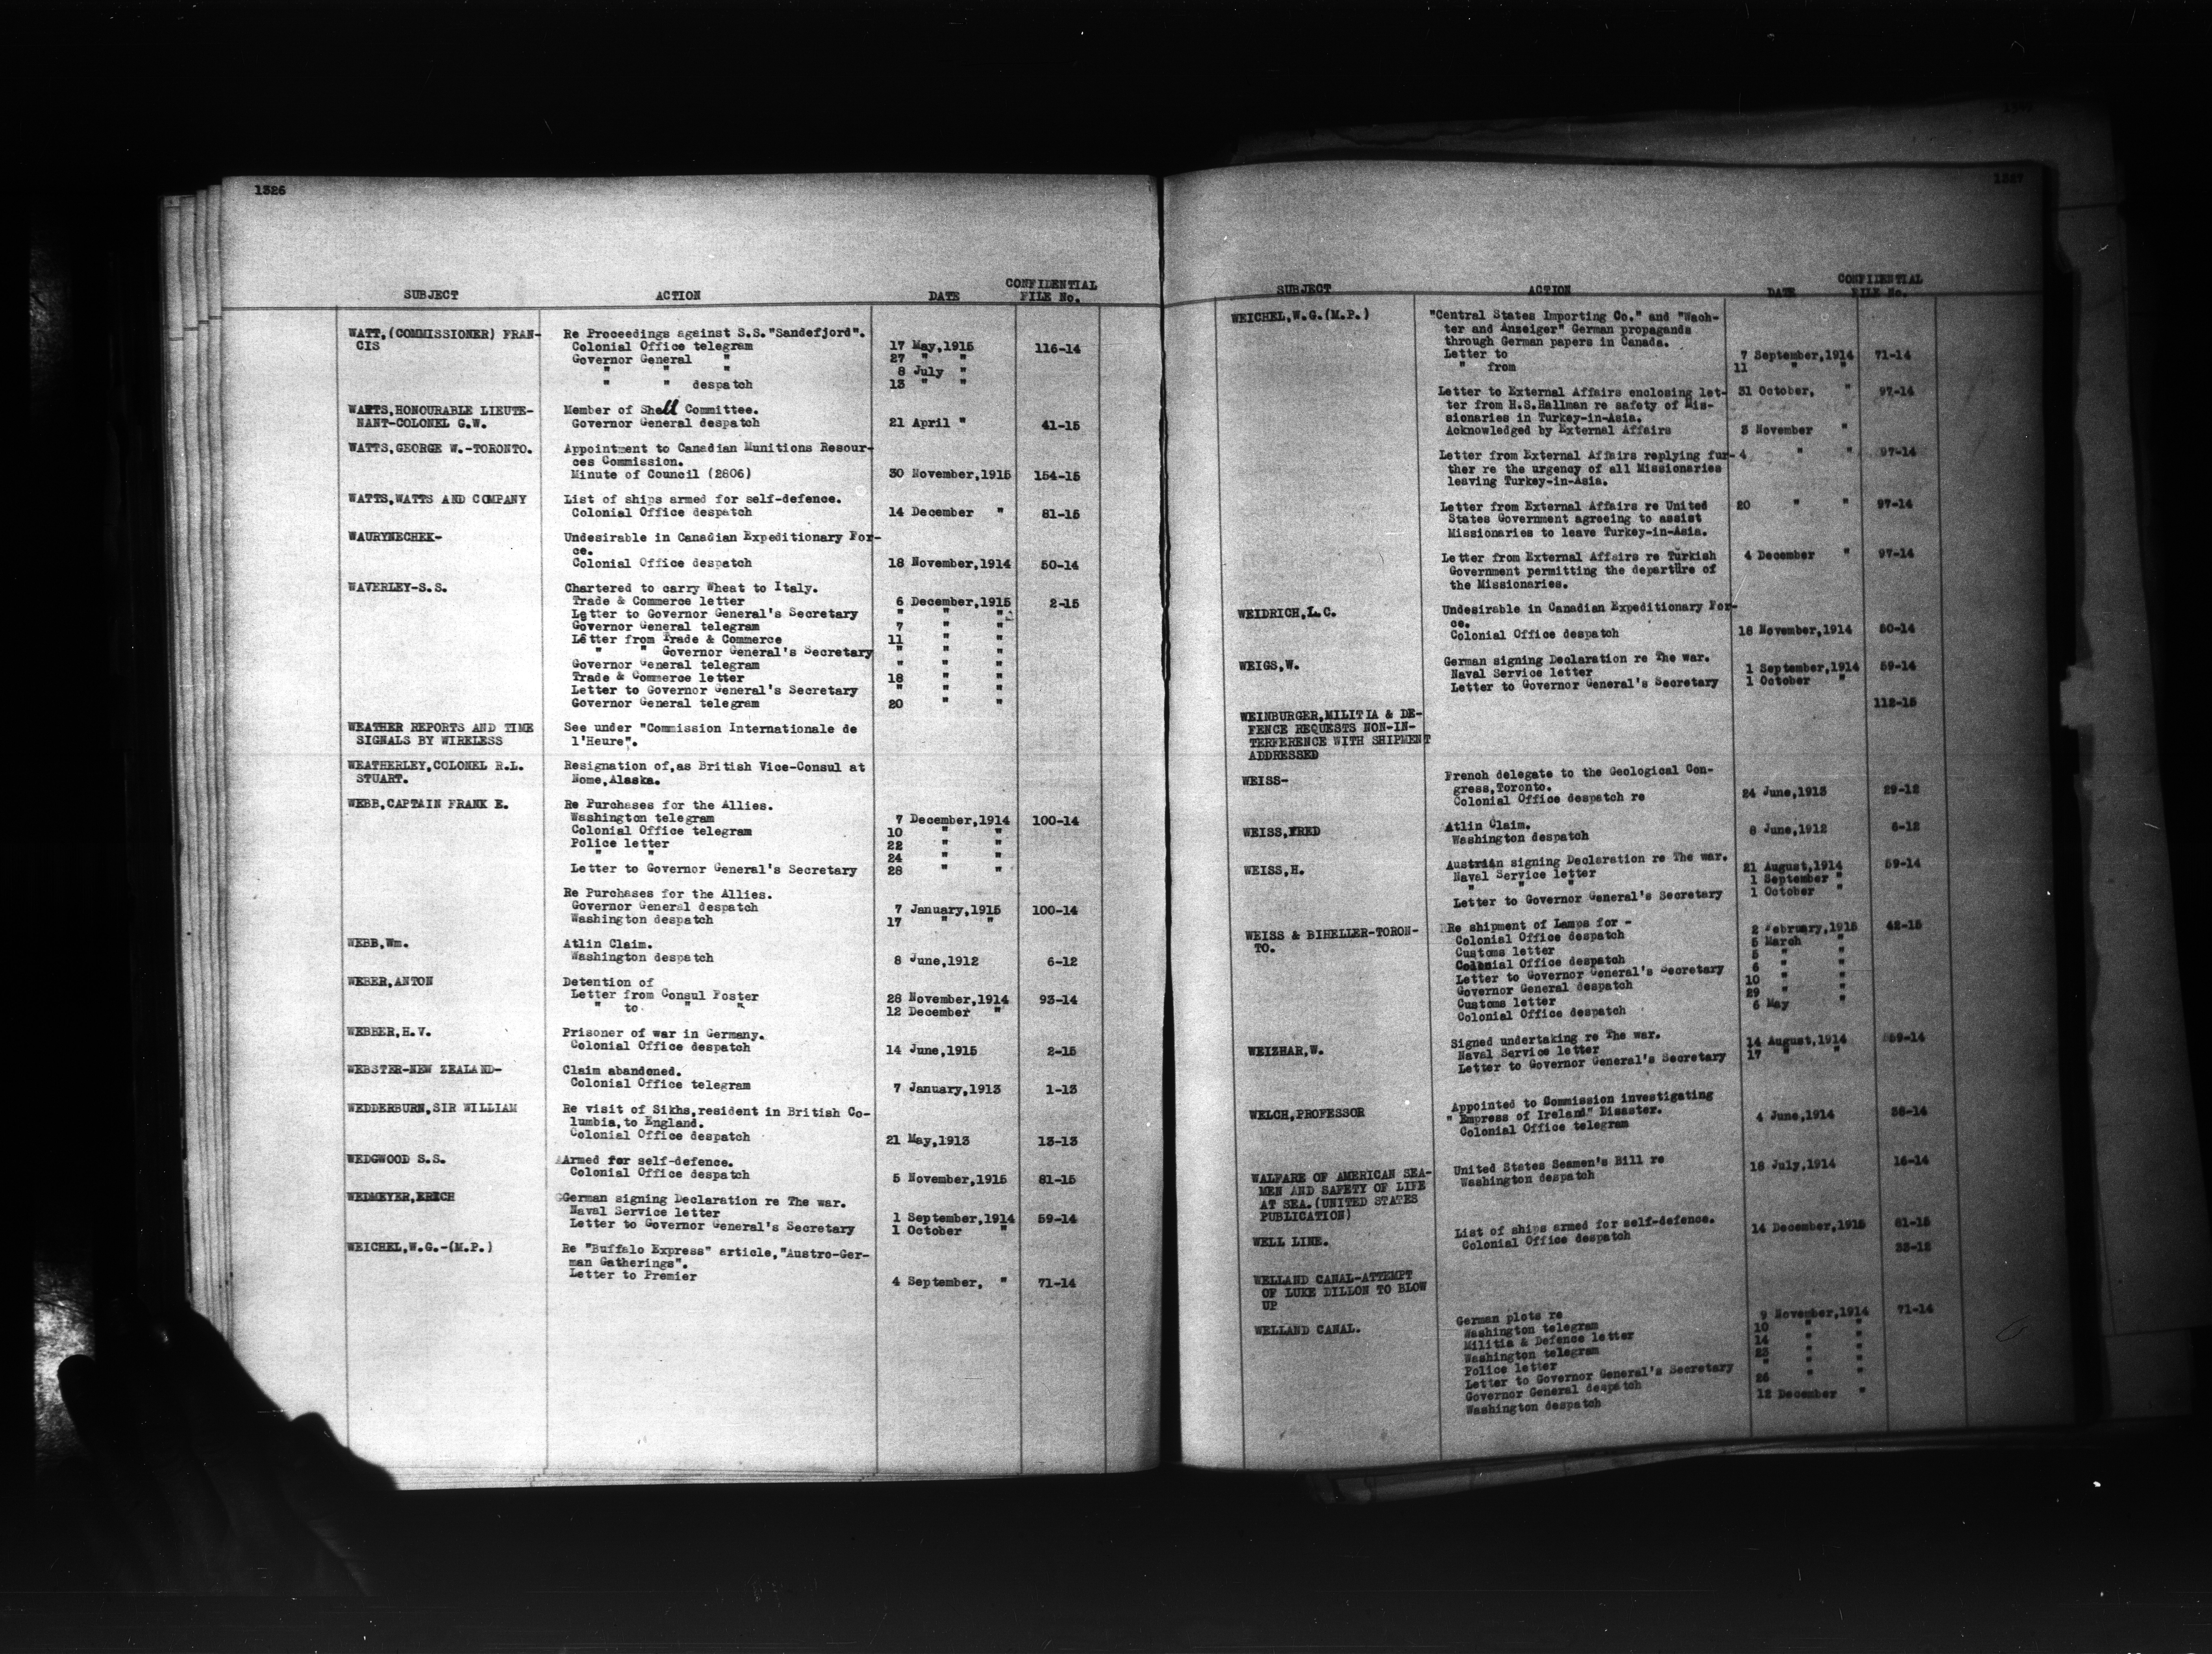 1326
SUBJECT ACTION DATE CONFIDENTIAL FILE No.
WATT,(COMMISSIONER) FRAN- Re Proceedings against S.S."Sandefjord".
CIS Colonial Office telegram 17 May,1915 116-14
Governor General " 27 " "
" " " 8 July "
" " despatch 13 " "
WATTS,HONOURABLE LIEUTE- Member of Shell Committee.
NANT-COLONEL G.W. Governor General despatch 21 April " 41-15
WATTS,GEORGE W.-TORONTO. Appointment to Canadian Munitions Resour-
ces Commission.
Minute of Council (2806) 30 November,1915 154-15
WATTS,WATTS AND COMPANY List of ships armed for self-defence.
Colonial Office despatch 14 December " 81-15
WAURYNECHEK- Undesirable in Canadian Expeditionary For-
ce.
Colonial Office despatch 18 November,1914 50-14
WAVERLEY-S.S. Chartered to carry Wheat to Italy.
Trade & Commerce letter 6 December,1915 2-15
Letter to Governor General's Secretary " " "
Governor General telegram 7 " "
Letter from Trade & Commerce 11 " "
" " Governor General's Secretary " " "
Governor General telegram " " "
Trade & Commerce letter 18 " "
Letter to Governor General's Secretary " " "
Governor General telegram 20 " "
WEATHER REPORTS AND TIME See under "Commission Internationale de
SIGNALS BY WIRELESS l'Heure".
WEATHERLEY,COLONEL R.L. Resignation of,as British Vice-Consul at
STUART. Nome,Alaska.
WEBB,CAPTAIN FRANK E. Re Purchases for the Allies.
Washington telegram 7 December,1914 100-14
Colonial Office telegram 10 " "
Police letter 22 " "
" " 24 " "
Letter to Governor General's Secretary 28 " "
Re Purchases for the Allies.
Governor General despatch 7 January,1915 100-14
Washington despatch 17 " "
WEBB,Wm. Atlin Claim.
Washington despatch 8 June,1912 6-12
WEBER,ANTON Detention of
Letter from Consul Foster 28 November,1914 93-14
" to " " 12 December "
WEBBER,H.V. Prisoner of war in Germany.
Colonial Office despatch 14 June,1915 2-15
WEBSTER-NEW ZEALAND- Claim abandoned.
Colonial Office telegram 7 January,1913 1-13
WEDDERBURN,SIR WILLIAM Re visit of Sikhs,resident in British Co-
lumbia,to England.
Colonial Office despatch 21 May,1913 13-13
WEDGWOOD S.S. Armed for self-defence.
Colonial Office despatch 5 November,1915 81-15
WEDMEYER,ERICH German signing Declaration re The war.
Naval Service letter 1 September,1914 59-14
Letter to Governor General's Secretary 1 October "
WEICHEL,W.G.-(M.P.) Re "Buffalo Express" article,"Austro-Ger-
man Gatherings".
Letter to Premier 4 September, " 71-14
1327
SUBJECT ACTION DATE CONFIDENTIAL FILE No.
WEICHEL,W.G.(M.P.) "Central States Importing Co." and "Wach-
ter and Anzeiger" German propaganda
through German papers in Canada.
Letter to 7 September,1914 71-14
" from 11 " "
Letter to External Affairs enclosing let- 31 October, " 97-14
ter from H.S.Hallman re safety of Mis-
sionaries in Turkey-in-Asia.
Acknowledged by External Affairs 3 November "
Letter from External Affairs replying fur- 4 " " 97-14
ther re the urgency of all Missionaries
leaving Turkey-in-Asia.
Letter from External Affairs re United 20 " " 97-14
States Government agreeing to assist
Missionaries to leave Turkey-in-Asia.
Letter from External Affairs re Turkish 4 December " 97-14
Government permitting the departure of
the Missionaries.
WEIDRICH,L.C. Undesirable in Canadian Expeditionary For-
ce.
Colonial Office despatch 18 November,1914 50-14
WEIGS,W. German signing Declaration re The war.
Naval Service letter 1 September,1914 59-14
Letter to Governor General's Secretary 1 October "
WEINBURGER,MILITIA & DE- 112-15
FENCE REQUESTS NON-IN-
TERFERENCE WITH SHIPMENT
ADDRESSED
WEISS- French delegate to the Geological Con-
gress,Toronto.
Colonial Office despatch re 24 June,1913 29-12
WEISS,FRED Atlin Claim.
Washington despatch 8 June,1912 6-12
WEISS,H. Austrian signing Declaration re The war.
Naval Service letter 21 August,1914 59-14
" " " 1 September "
Letter to Governor General's Secretary 1 October "
WEISS & BIHELLER-TORON- Re shipment of Lamps for -
TO. Colonial Office despatch 2 February,1915 42-15
Customs letter 5 March "
Colonial Office despatch 5 " "
Letter to Governor General's Secretary 6 " "
Governor General despatch 10 " "
Customs letter 29 " "
Colonial Office despatch 6 May "
WEIZHAR,W. Signed undertaking re The war.
Naval Service letter 14 August,1914 59-14
Letter to Governor General's Secretary 17 " "
WELCH,PROFESSOR Appointed to Commission investigating
"Empress of Ireland" Disaster.
Colonial Office telegram 4 June,1914 38-14
WALFARE OF AMERICAN SEA- United States Seamen's Bill re
MEN AND SAFETY OF LIFE Washington despatch 18 July,1914 16-14
AT SEA.(UNITED STATES
PUBLICATION)
WELL LINE. List of ships armed for self-defence.
Colonial Office despatch 14 December,1915 81-15
WELLAND CANAL-ATTEMPT 33-12
OF LUKE DILLON TO BLOW
UP
WELLAND CANAL. German plots re
Washington telegram 9 November,1914 71-14
Militia & Defence letter 10 " "
Washington telegram 14 " "
Police letter 23 " "
Letter to Governor General's Secretary " " "
Governor General despatch 26 " "
Washington despatch 12 December "